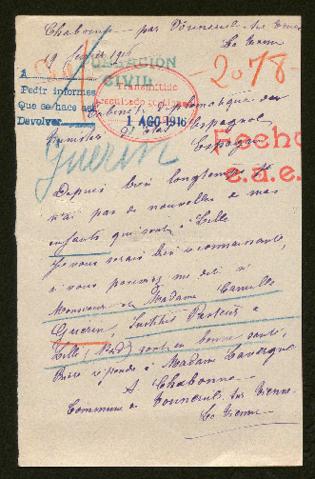 Chabonne par Vouneuil sur Vienne
La Vienne
1916
FUNDACIÓN
CIVIL
2078
A
Pedir informes
Que se hace
Devolver
Transmitido
Cabinet diplomatique du
Ministre d'état Espagnol
1 AGO 1916
Espagne
Guerin
Fecho
e.a.e.
Depuis bien longtemps je
n'ai pas de nouvelles de mes
enfants qui sont à Lille
Je vous serais bien reconnaissante,
si vous pouviez me dire si
Monsieur et Madame Camille
Guerin, Institut Pasteur à
Lille, sont en bonne santé,
Prière réponse à Madame Lavergne
A Chabonne
Commune de Vouneuil sur Vienne
La Vienne